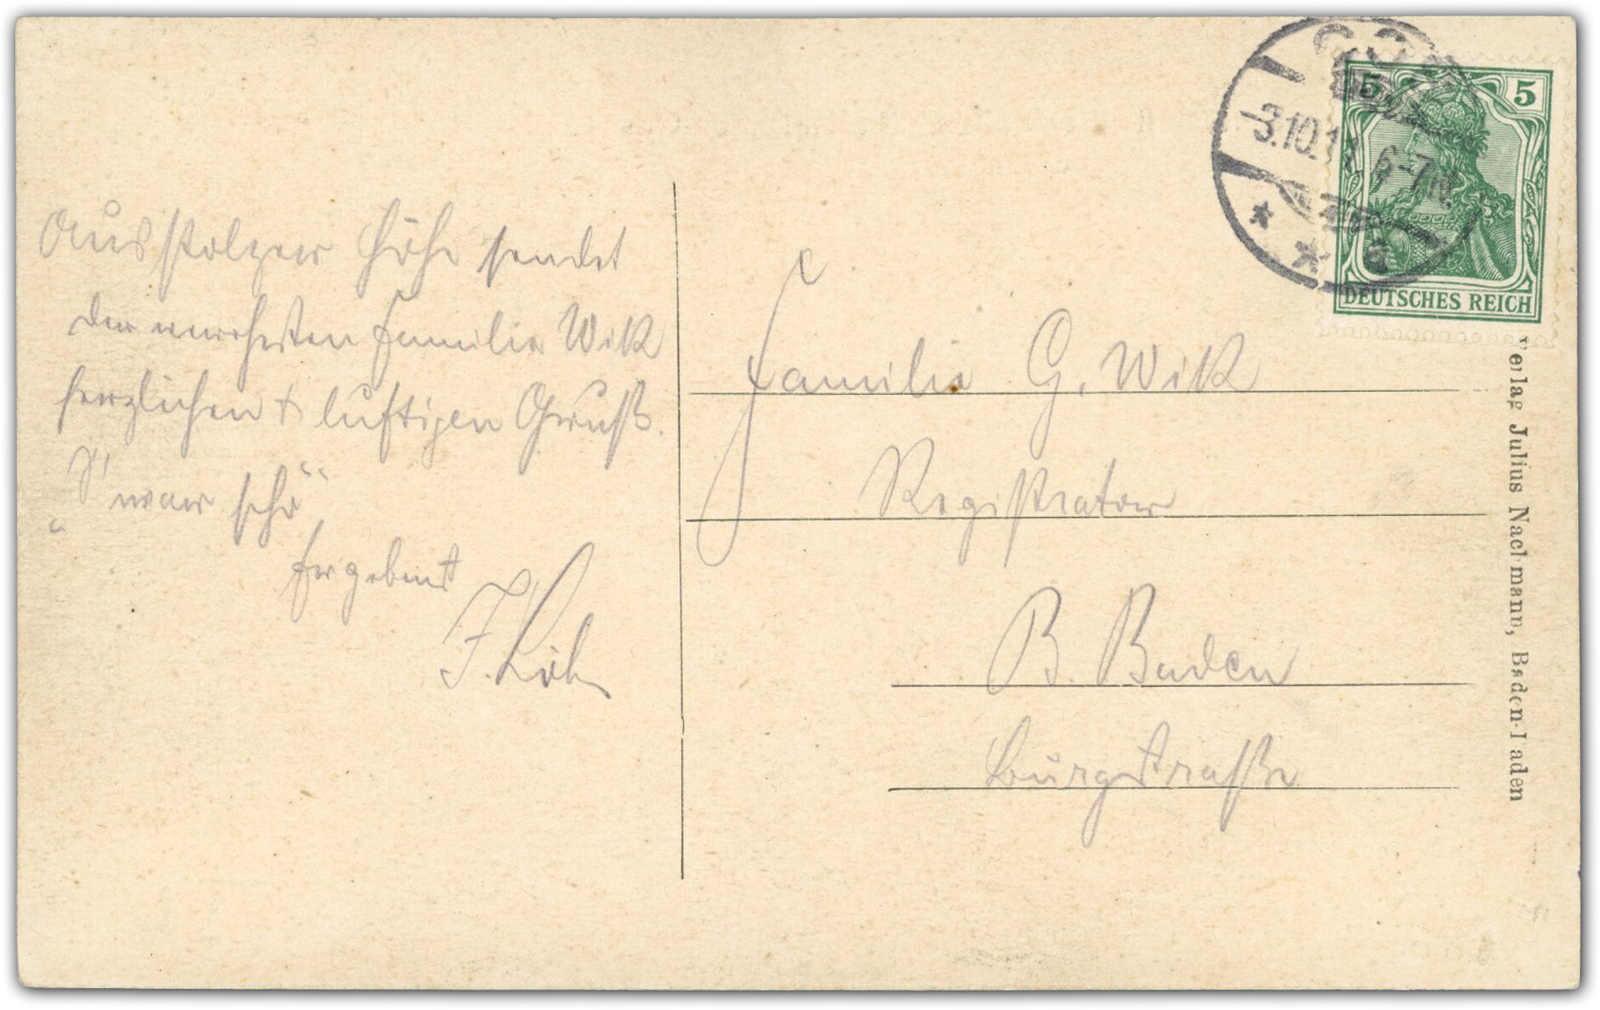 Aus stolzer Höhe sendet
der werthesten Familie Wik
herzlichen + luftigen Gruß.
S' war schö"
Ergebenst
F.
Familie G. Wik
Registrator
B. Baden
Burgstraße
3.10.11. 6-7N.
* * a
5 5
DEUTSCHES REICH
Verlag Julius Nachmann, Baden-Baden